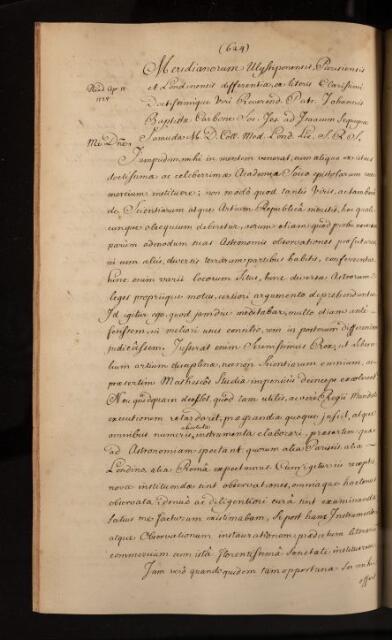 (624)
Meridianorum Ulyssiponensis, Parisiensis
et Londinensis differentia, ex literis Clarissimi
Read Ap. 11
1728
Doctissimique Viri Reverend. Patr. Johannis
Baptistæ Carbone Soc. Jes. ad Isaacum Sequeyra
Samuda M. D. Coll. Med. Lond. Lic. S. R. S.
Jampridem mihi in mentem venerat, cum aliquo ex istius
doctissimæ ac celeberrimæ Academiæ Socio epistolarum
mercium instituere; non modò quod tantis Viris, ac tam bene
de Scientiarum atque Artium Republicâ meritis, hoc qual
cunque obsequium deberetur, verum etiam quod probè noveram
parum admodum suas Astronomis observationes profuturas
ni cum aliis, diversis terrarum partibus habitis, conferrentur
hinc enim varii locorum situs, hinc diversæ Astrorum
leges propriique motus certiori argumento deprehenduntur
Id igitur ego, quod jamdiu meditabar, multo etiam ante
ni meliori usus consilio, rem in posterum differendam
judicâssem. Jusserat enim Serenissimus Rex, ut
artium disciplinæ, necnon Scientiarum omnium, ac
præsertim Matheseos Studia impensius deinceps
Ne quidquam deesset, quod tam utilis, ac verè Regii Mandati
executionem retardaret, prægrandia quoque jussit, atque
omnibus numeris absoluta instrumenta elaborari, præsertim quæ
ad Astronomiam spectant: quorum alia Parisiis, alia
Londino, alia Româ Cum igitur iis receptis
novæ instituendæ sint observationes, omniaque hactenus
observata denuò ac diligentiori curâ sint examinanda
satius me facturum existimabam, si post hanc Instrumentorum
atque Observationum instaurationem, literarum
commercium cum istâ florentissimâ Societate instituerem
Jam verò quandoquidem tam opportuna se mihi